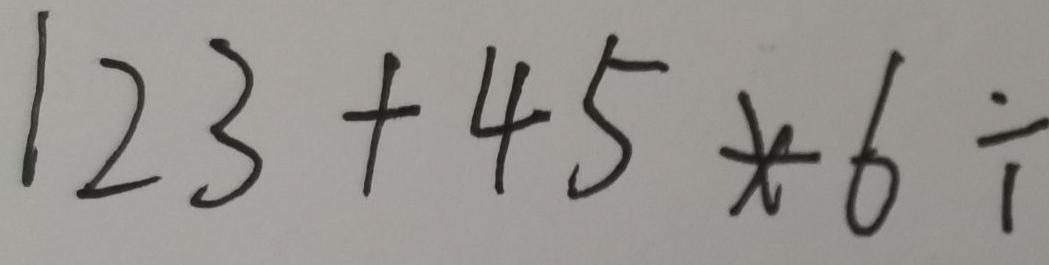 123+45*6÷